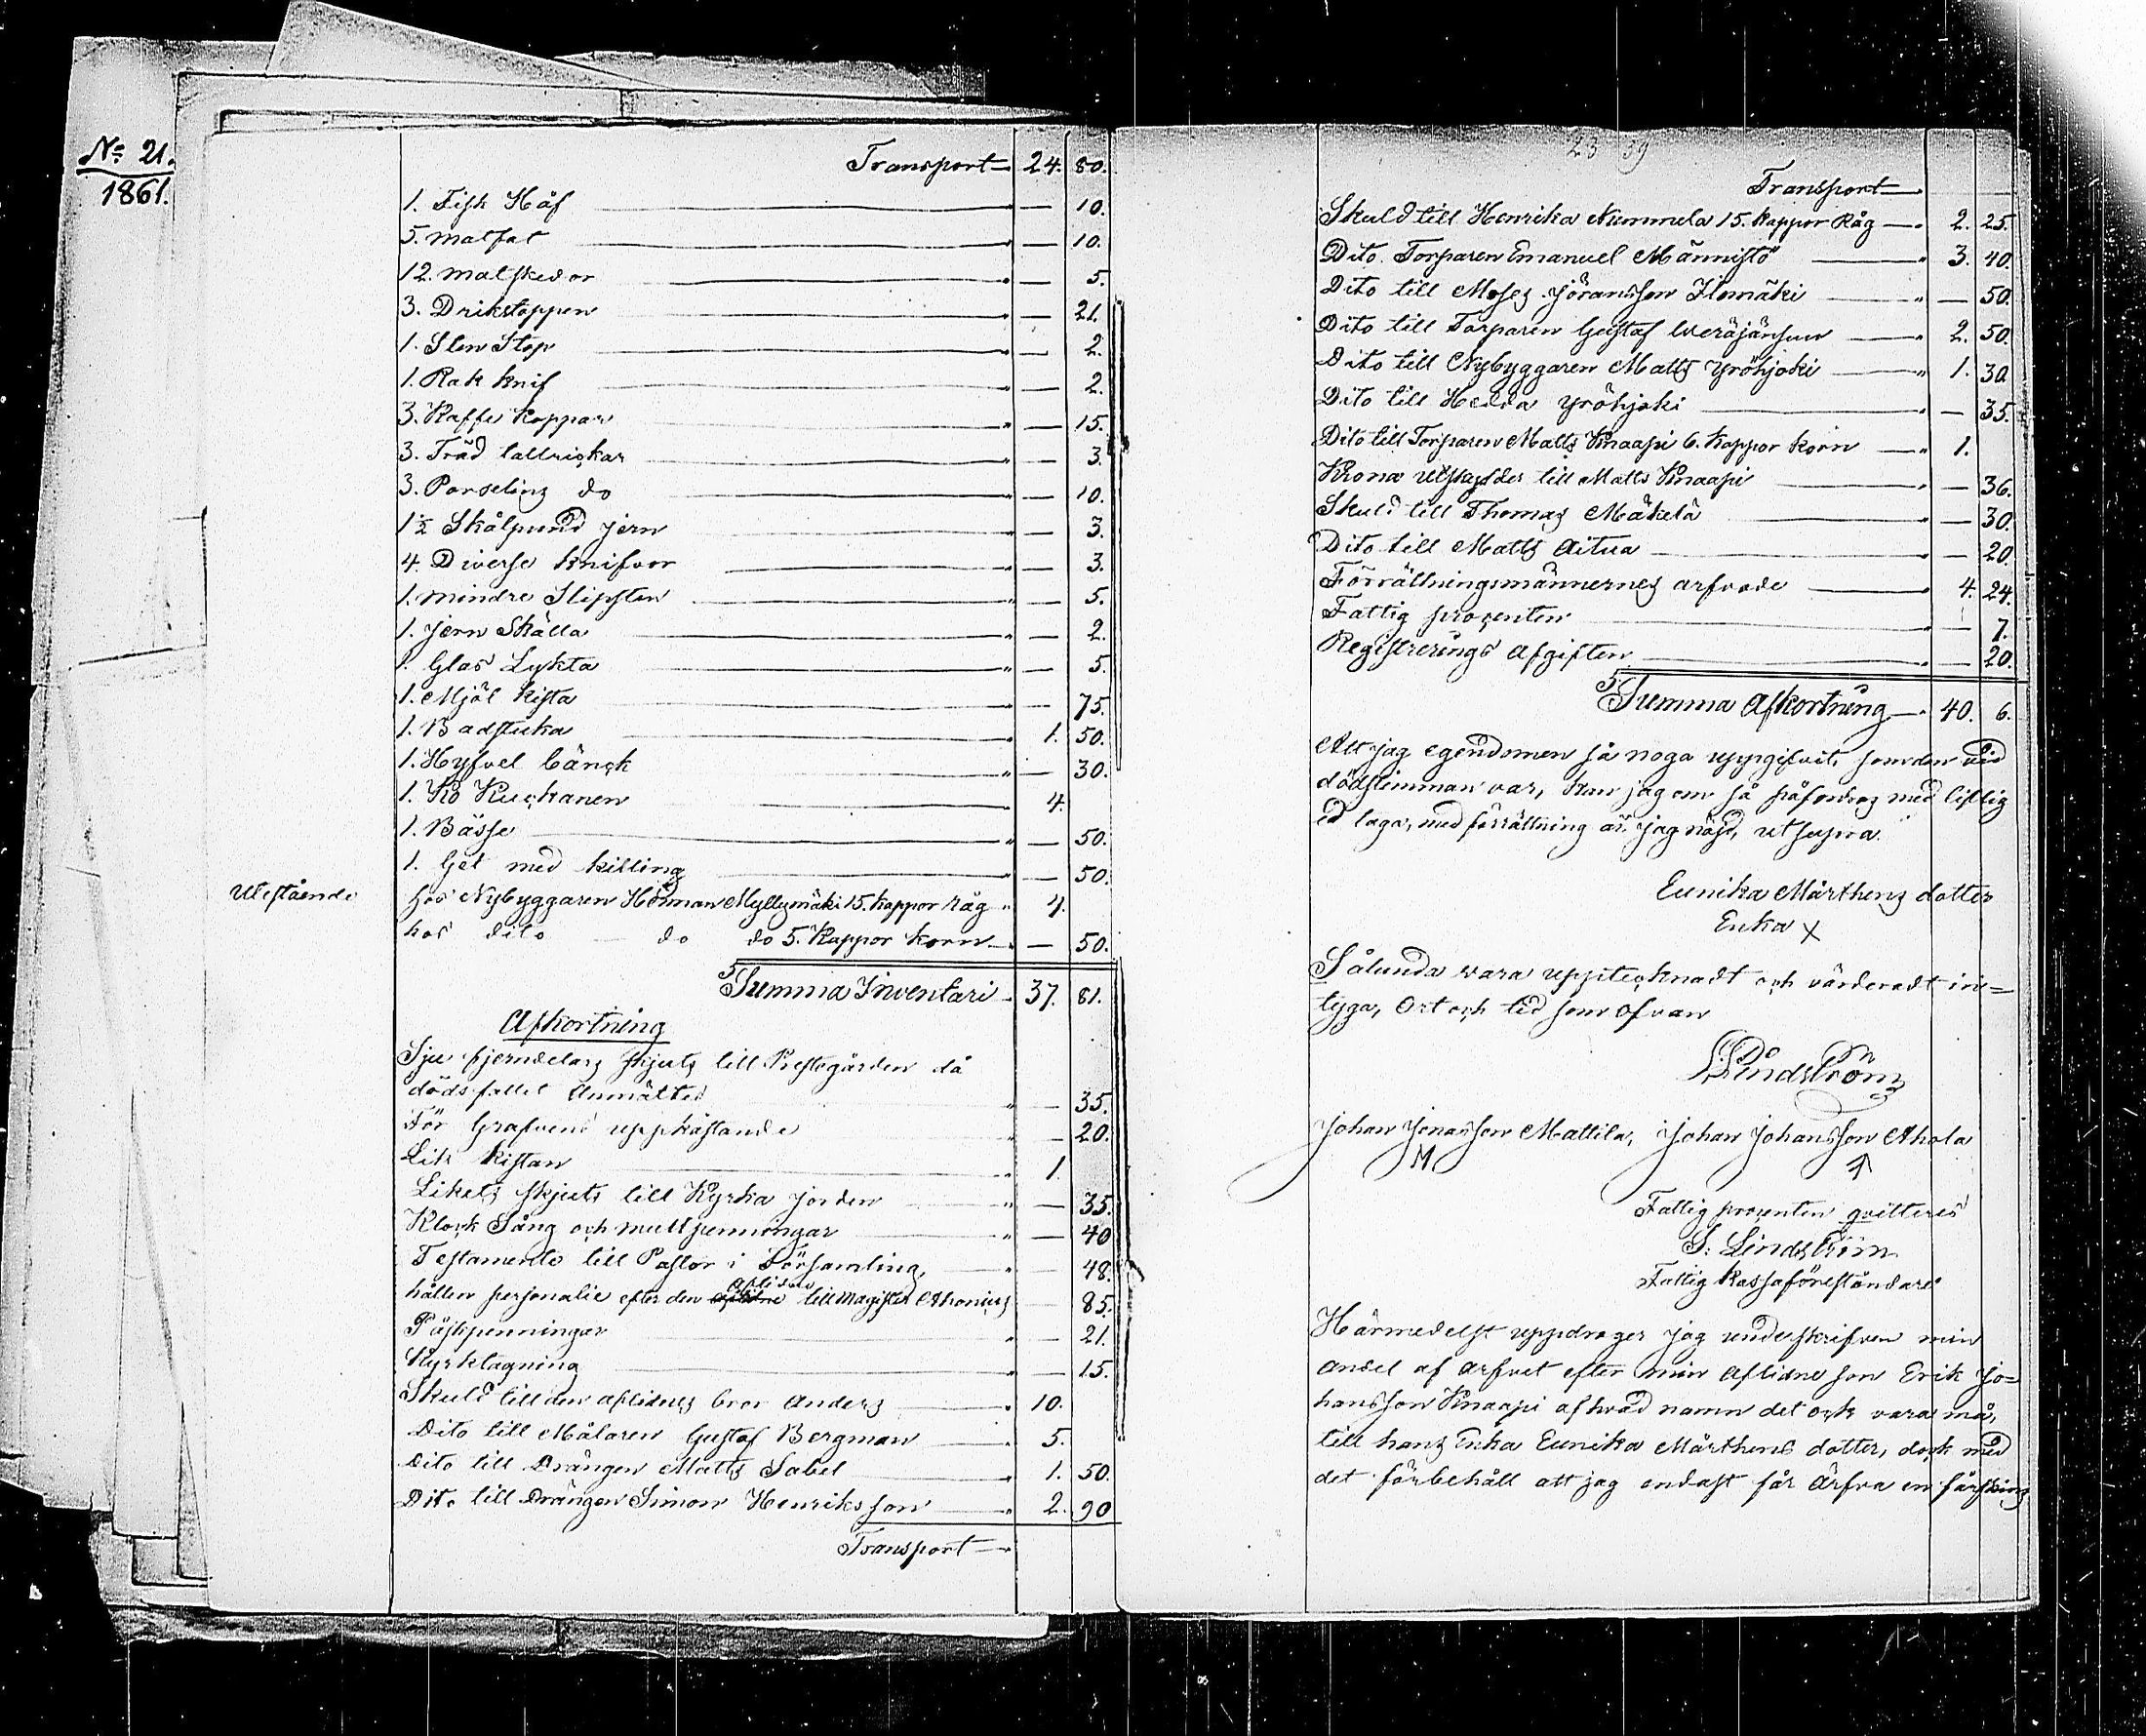 No 21.
1861.
Transport 24. 80.
1. Fisk Håf — 10.
5. matfat — 10.
12. matskedor — 5.
3. Drikstoppen — 21.
1. Sten Stop — 2.
1. Rak knif — 2.
3. Kaffe Koppar — 15.
3. Träd tallrickar — 3.
3. Porselins do — 10.
1½ Skålpund jern — 3.
4. Diverse knifvor — 3.
1. mindre Slipsten — 5.
1. jern Skälla — 2.
1. Glas Lykta — 5.
1. Mjöl kista — 75.
1. Badstuka 1. 50.
1. Hyfvel bänck — 30.
1. Ko Kuckanen 4.
1. Bässe — 50.
1. Get med killing — 50.
Utestående hos Nybyggaren Herman Myllymäki 15. kappor råg 4.
hos dito do do 5. Kappor korn — 50.
Summa Inventari 37. 81.
Afkortning
Sju fjerndelars skjuts till Prestegården då
dödsfallet Anmältes — 35.
För Grafvens uppkastande — 20.
Lik kistan 1.
Likets skjuts till Kyrka jorden — 35.
Klock Sång och mullpenningar — 40
Testamente till Pastor i Församling — 48.
hållen personalie efter den aflidne till Magister Ahonius — 85.
Påskpenningar — 21.
Kyrktagning — 15.
Skuld till den aflidnes bror Anders 10.
Dito till Målaren Gustaf Bergman 5.
Dito till Drängen Matts Sabel 1. 50.
Dito till Drängen Simon Henriksson 2. 90
Transport
23 39
Transport
Skuld till Henrika Nummela 15. kappor Råg 2. 25.
Dito Torparen Emanuel Männistö 3. 40.
Dito till Moses Jöransson Ilomäki — 50.
Dito till Torparen Gustaf 2. 50.
Dito till Nybyggaren Matts Yröhjoki 1. 30
Dito till Hedda Yröhjoki — 35.
Dito till Torparen Matts Knaapi 6. kappor korn 1.
Krono utskylder till Matts Knaapi — 36.
Skuld till Thomas Mäkelä — 30.
Dito till Matts Aitua — 20.
Förrättningsmännernes arfvode 4. 24.
Fattig procenten — 7.
Registrerings Afgiften — 20.
Summa Afkortning 40. 6.
Att jag egendomen så noga uppgifvit, som den vid
dödstimman var, kan jag om så påfordras med liflig
ed laga, med förrättning är jag nöjd, ut supra.
Eunika Mårthens dotter
Enka X
Sålunda vara upptecknadt och värderadt in=
tyga, Ort och tid som ofvan
S. Lindström
Johan Jonasson Mattila, Johan Johansson Ahola
M
Fattig procenten qvitteres
S. Lindström
Fattig Kassaföreståndare
Härmedelst uppdrager jag underskrifven min
andel af arfvet efter min aflidne son Erik Jo=
hansson Knaapi af hvad namn det ock vara må,
till hans Enka Eunika Mårthens dotter, dock med
det förbehåll att jag endast får ärfva en fårskins